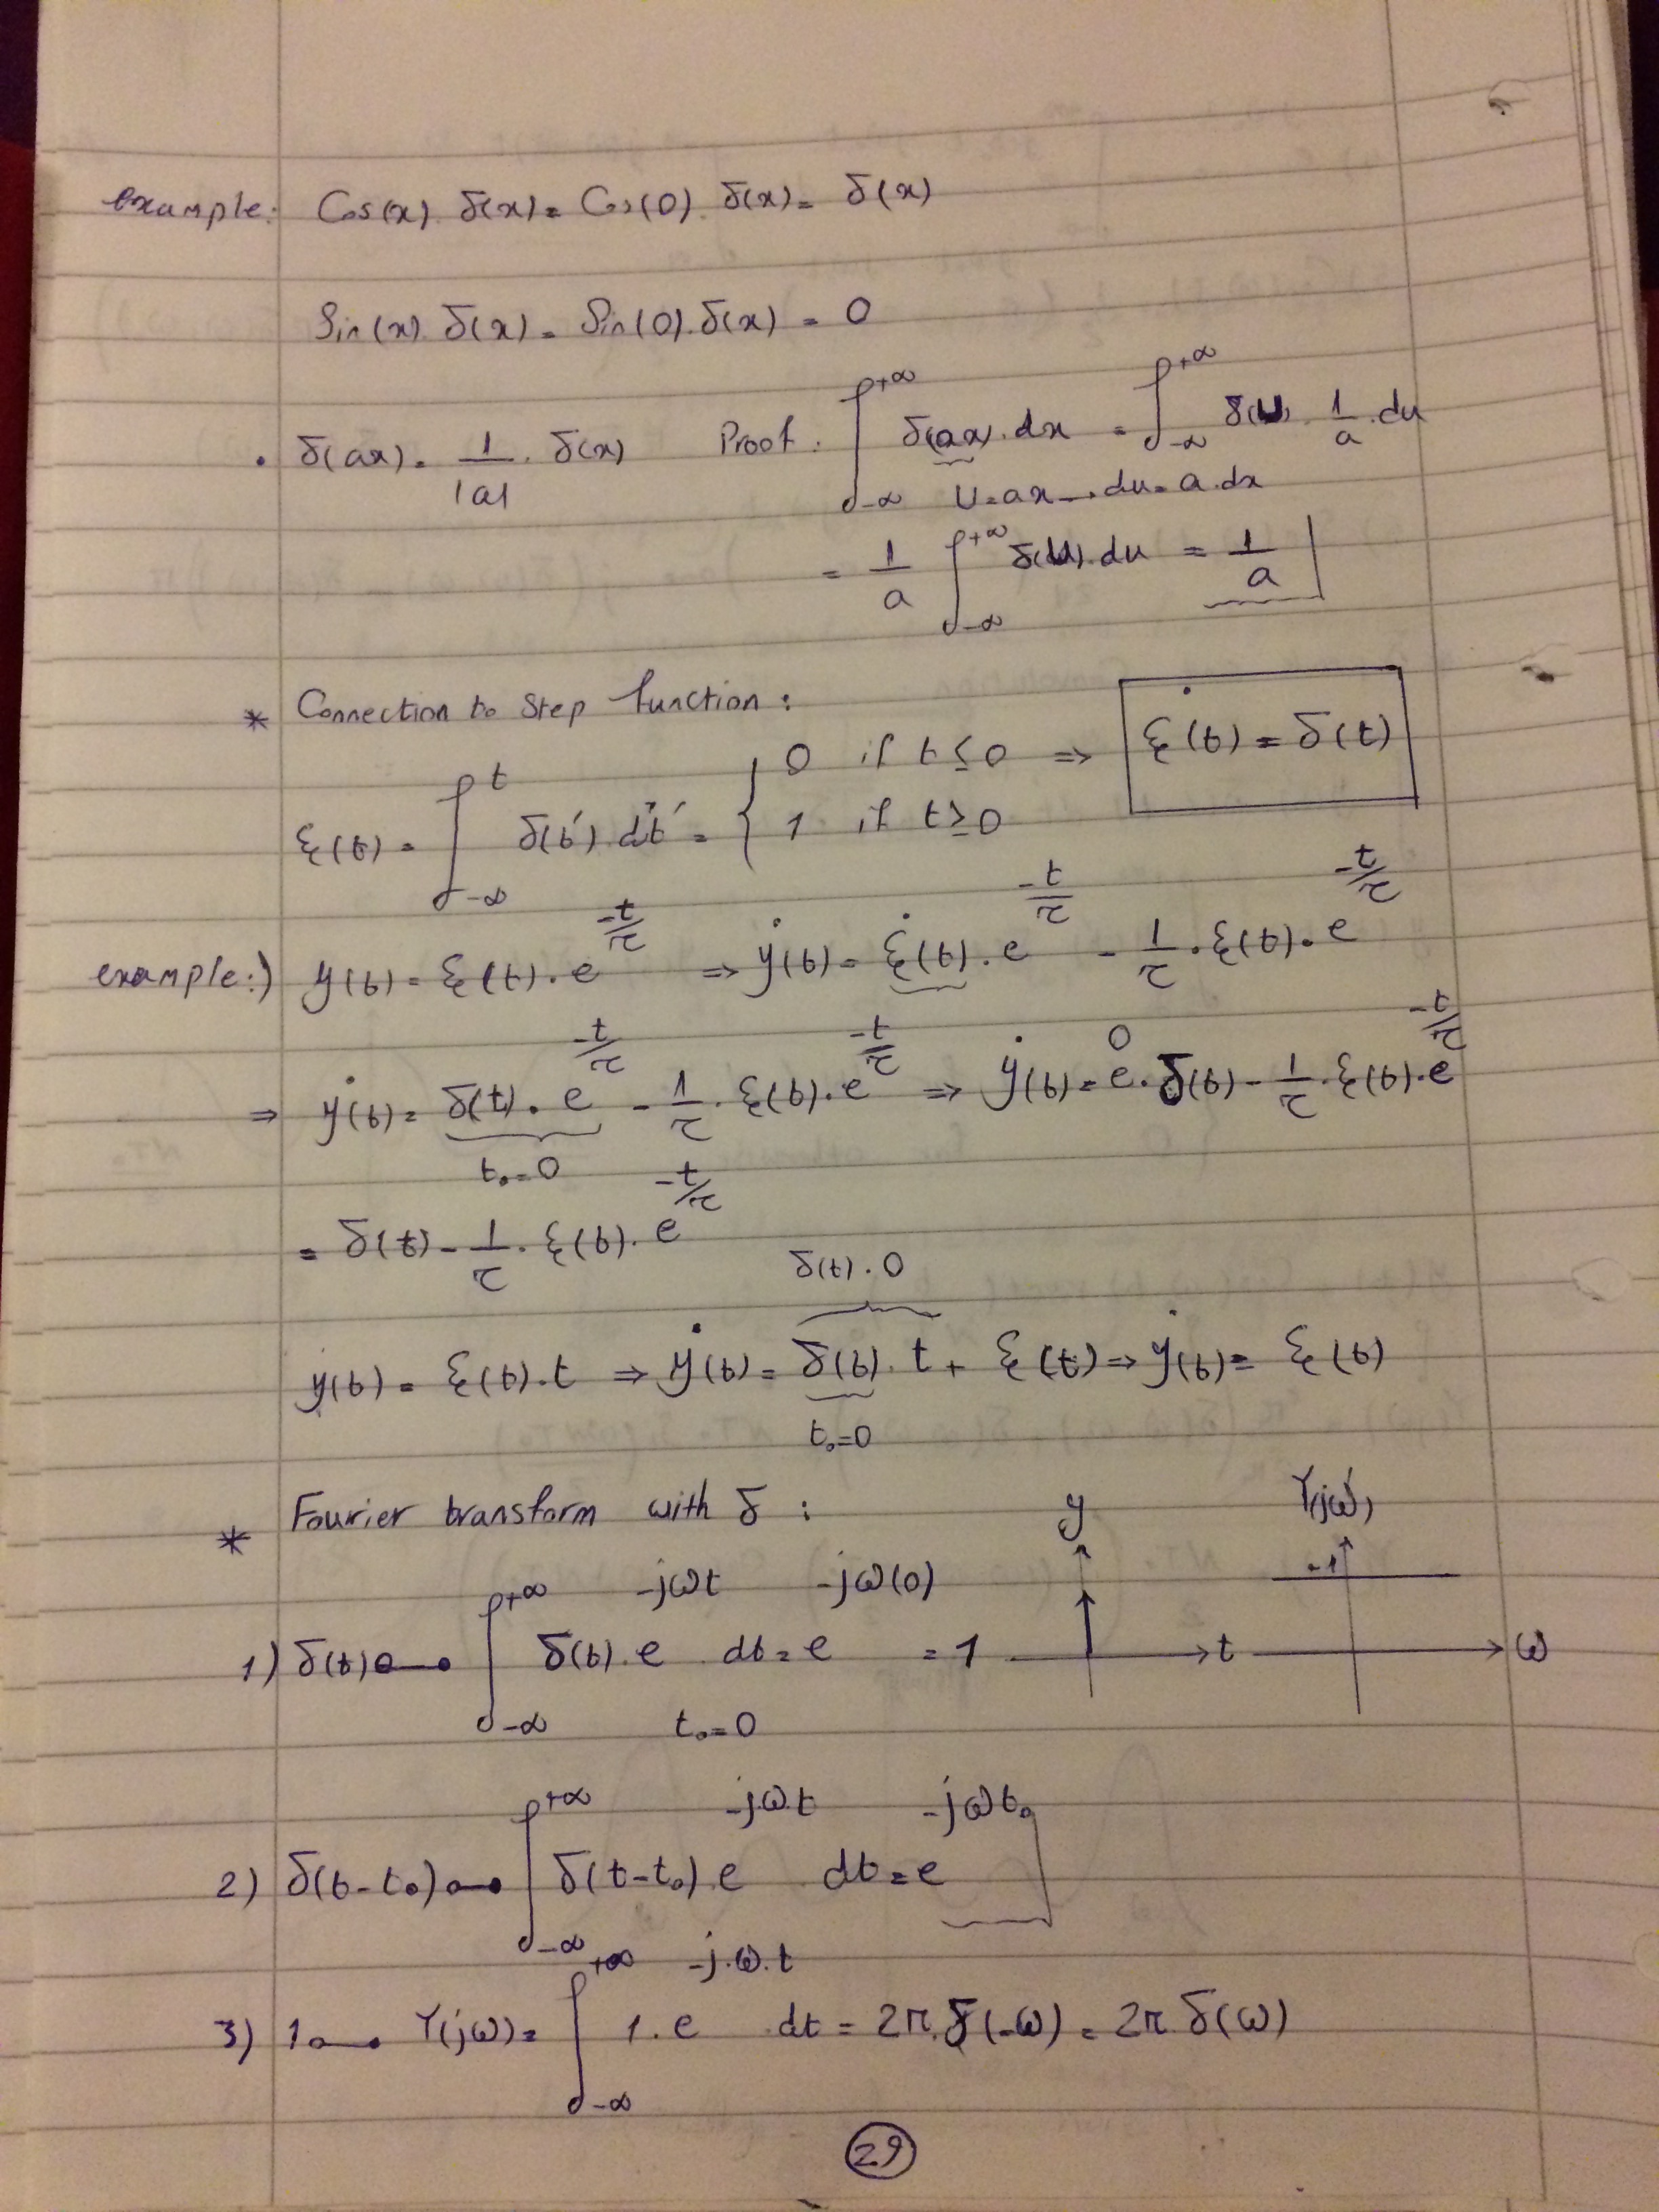 example: Cos(x). δ(x) = Cos(0). δ(x) = δ(x)
Sin(x). δ(x) = Sin(0). δ(x) = 0
• δ(ax) = 1/|a| . δ(x) Proof: ∫_{-∞}^{+∞} δ(ax). dx = ∫_{-∞}^{+∞} δ(u). 1/a . du
U = ax → du = a.dx
= 1/a ∫_{-∞}^{+∞} δ(u). du = 1/a
* Connection to Step function:
ξ(t) = ∫_{-∞}^{t} δ(t') dt' = { 0 if t ≤ 0 ; 1 if t ≥ 0 ⇒ ξ̇(t) = δ(t)
example:) y(t) = ξ(t). e^{-t/τ} ⇒ ẏ(t) = ξ̇(t). e^{-t/τ} - 1/τ . ξ(t). e^{-t/τ}
⇒ ẏ(t) = δ(t). e^{-t/τ} - 1/τ . ξ(t). e^{-t/τ} ⇒ ẏ(t) = e^0 . δ(t) - 1/τ . ξ(t). e^{-t/τ}
t₀ = 0
= δ(t) - 1/τ . ξ(t). e^{-t/τ}
δ(t). 0
y(t) = ξ(t). t ⇒ ẏ(t) = δ(t). t + ξ(t) ⇒ ẏ(t) = ξ(t)
t₀=0
* Fourier transform with δ :
y Y(jω)
1
1) δ(t) o—• ∫_{-∞}^{+∞} δ(t). e^{-jωt} dt = e^{-jω(0)} = 1 t ω
t₀=0
2) δ(t-t₀) o—• ∫_{-∞}^{+∞} δ(t-t₀). e^{-jω.t} dt = e^{-jωt₀}
3) 1 o—• Y(jω) = ∫_{-∞}^{+∞} 1. e^{-j.ω.t} dt = 2π. δ(-ω) = 2π. δ(ω)
29